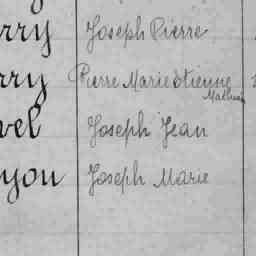 rry Joseph Pierre
rry Pierre Marie Etienne
Mathurin
vel Joseph Jean
yon Joseph Marie